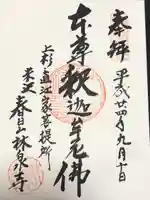 奉拝
平成廿四年九月十日
本尊釈迦牟尼佛
上杉直江家菩提所
米沢
春日山林泉寺